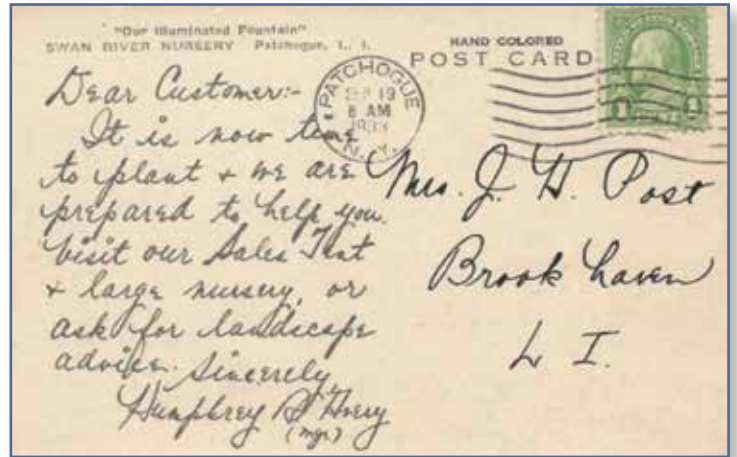 "Our Illuminated Fountain"
SWAN RIVER NURSERY Patchogue, L. I.
HAND COLORED
POST CARD
PATCHOGUE
19
8 AM
1933
N.Y.
1
Dear Customer:-
It is now time
to plant + we are
prepared to help you.
Visit our Sales Tent
+ large nursery, or
ask for landscape
advice.
Sincerely,
Humphrey B. Avery
(mgr.)
Mrs. J. H. Post
Brook haven
L I.